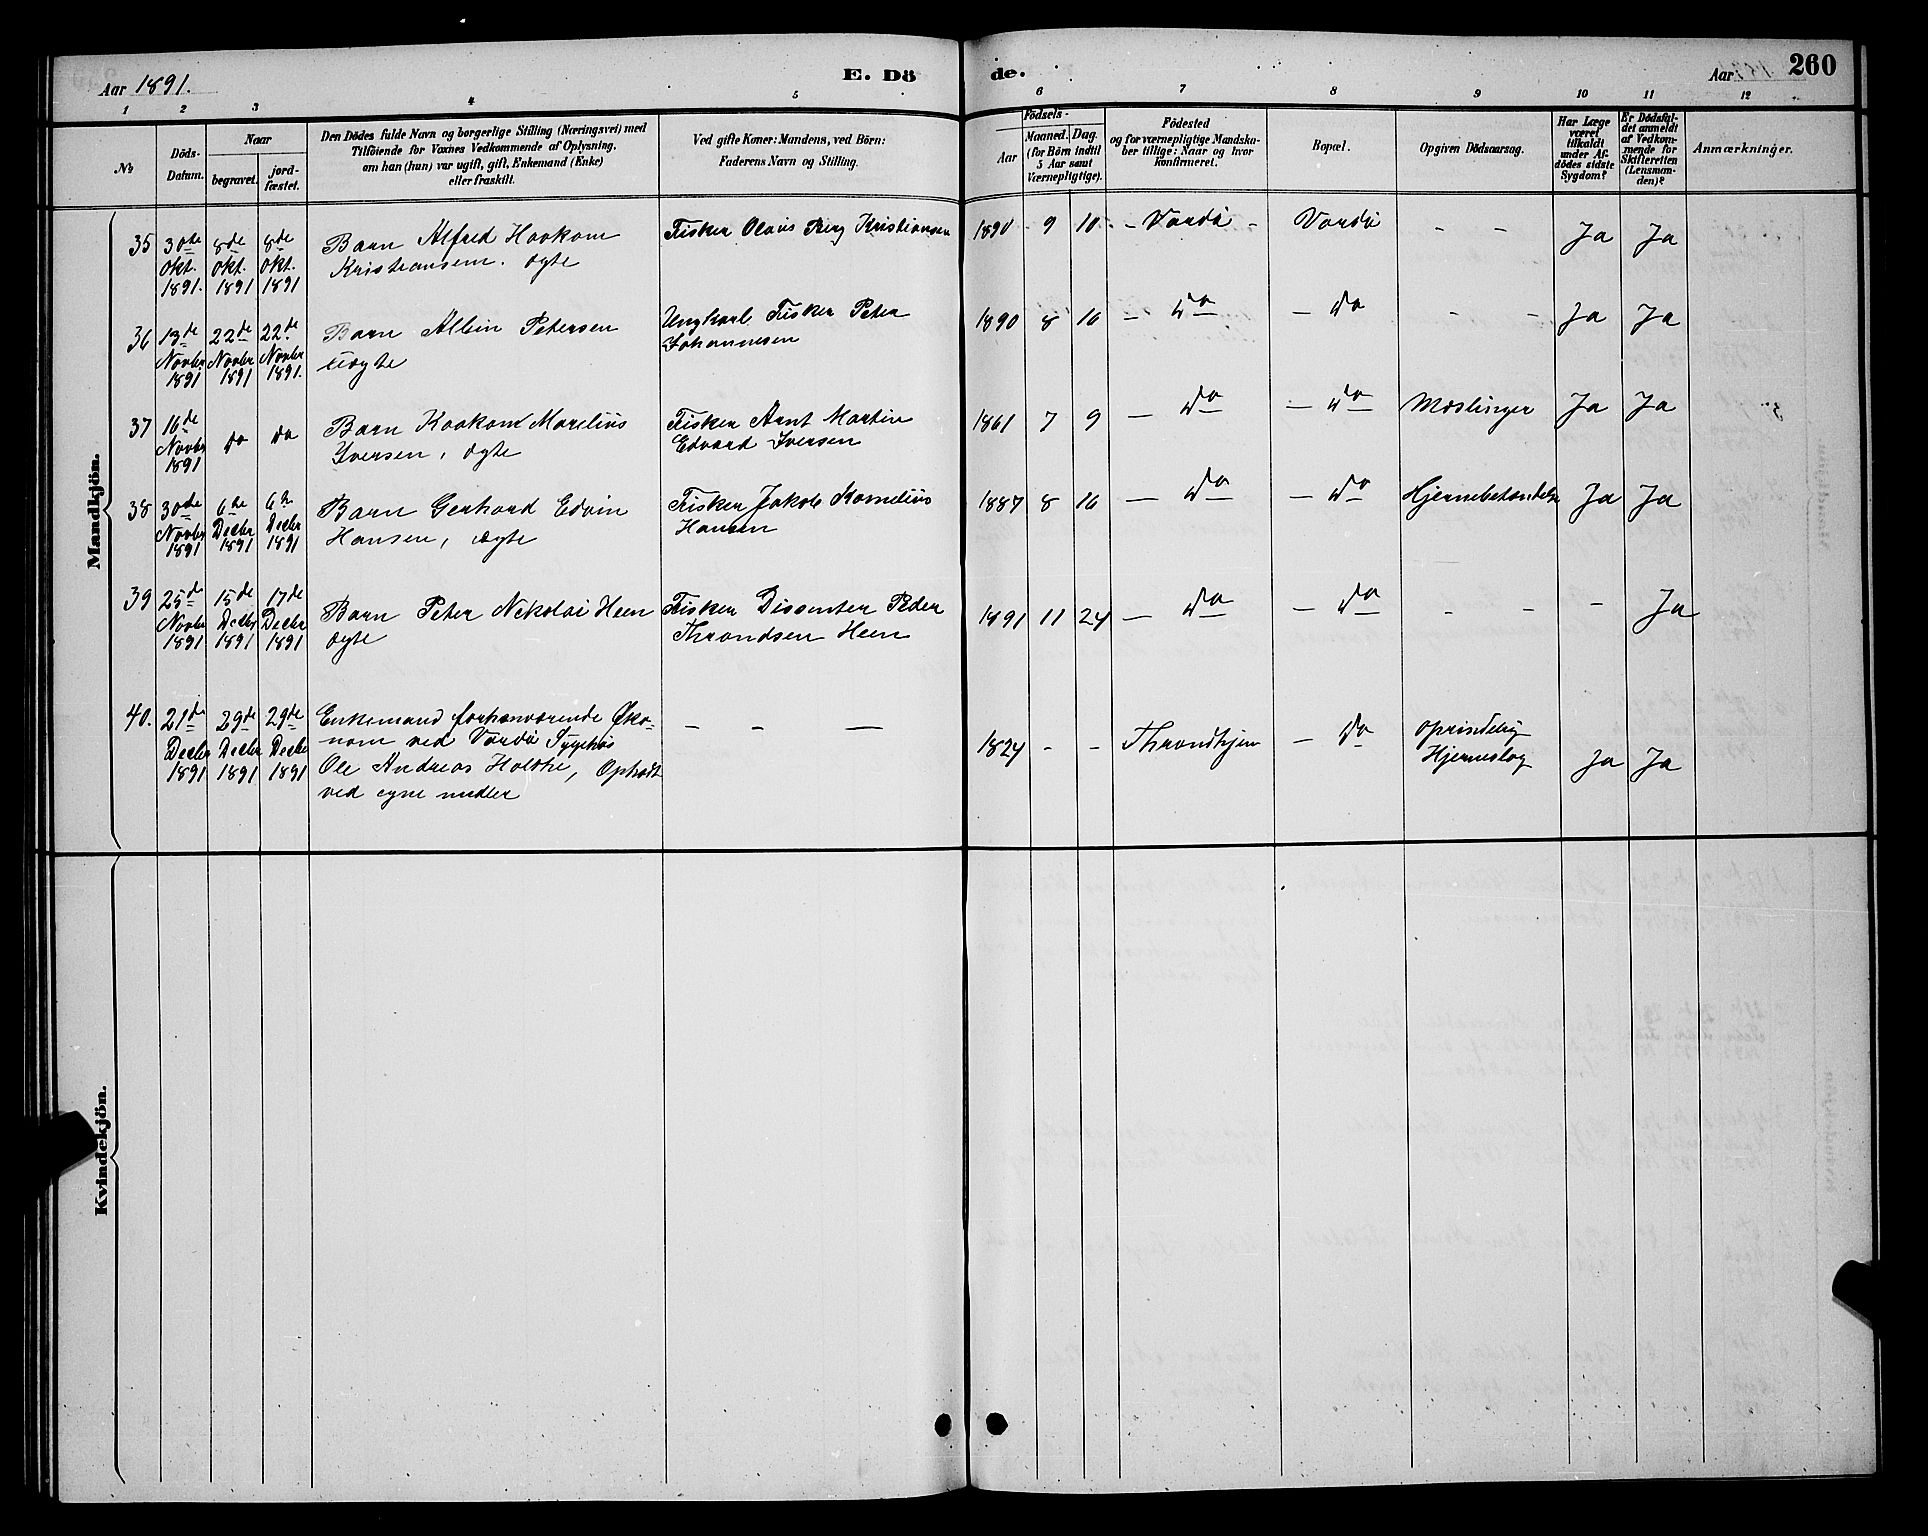 Aar 1891.
E. Dö
de.
Aar
260
1 2 3 4 5 6 7 8 9 10 11 12
№
Döds-
Datum.
Naar
begravet.
jord-
fæstet.
Den Dödes fulde Navn og borgerlige Stilling (Næringsvei) med
Tilföiende for Voxnes Vedkommende af Oplysning.
om han (hun) var ugift, gift, Enkemand (Enke)
eller fraskilt.
Ved gifte Koner: Mandens, ved Börn:
Faderens Navn og Stilling.
Födsels-
Aar
Maaned. Dag.
(for Börn indtil
5 Aar samt
Værnepligtige).
Födested
og for værnepligtige Mandskа-
ber tillige: Naar og hvor
konfirmeret.
Bopæl.
Opgiven Dödsaarsag.
Har Læge
været
tilkaldt
under Af-
dödes sidste
Sygdom?
Er Dödsfal-
det anmeldt
af Vedkom-
mende for
Skifteretten
(Lensman-
den)?
Anmærkninger.
Mandkjön.
35 30de 8de 8de Barn Alfred Haakom Fisker Olaus Kristiansen 1890 9 10 - Vardö - Vardö - - Ja Ja
Okt. Okt. Okt. Kristiansen. ægte
1891. 1891 1891
36 13de 22de 22de Barn Albin Petersen Ungkarl Fisker Peter 1890 8 16 - do - do - - Ja Ja
Novbr Novbr Novbr uægte Johannesen
1891 1891 1891.
37 16de do do Barn Marelius Fisker Arnt Martin 1861 7 9 - do - do Meslinger Ja Ja
Novbr Iversen, ægte Edvard Iversen
1891
38 30de 6te 6te Barn Gerhard Edvin Fisker Jakob Kornelius 1887 8 16 - do - do Hjernebetændelse Ja Ja
Novbr Decbr Decbr Hansen, ægte Hansen
1891 1891 1891
39 25de 15de 17de Barn Peter Nikolai Heen Fisker Dissenter Peder 1891 11 24 - do - do - - - Ja
Novbr Decbr Decbr ægte Throndsen Heen
1891 1891 1891
40. 21de 29de 29de Enkemand forhenværende Øko- - - - 1824 - - Throndhjem - do oprindelig Ja Ja
Decbr Decbr Decbr nom ved Vardö Sygehus Hjerneslag
1891 1891 1891 Ole Andreas Holthe, Opholdt
ved egne midler
Kvindekjön.